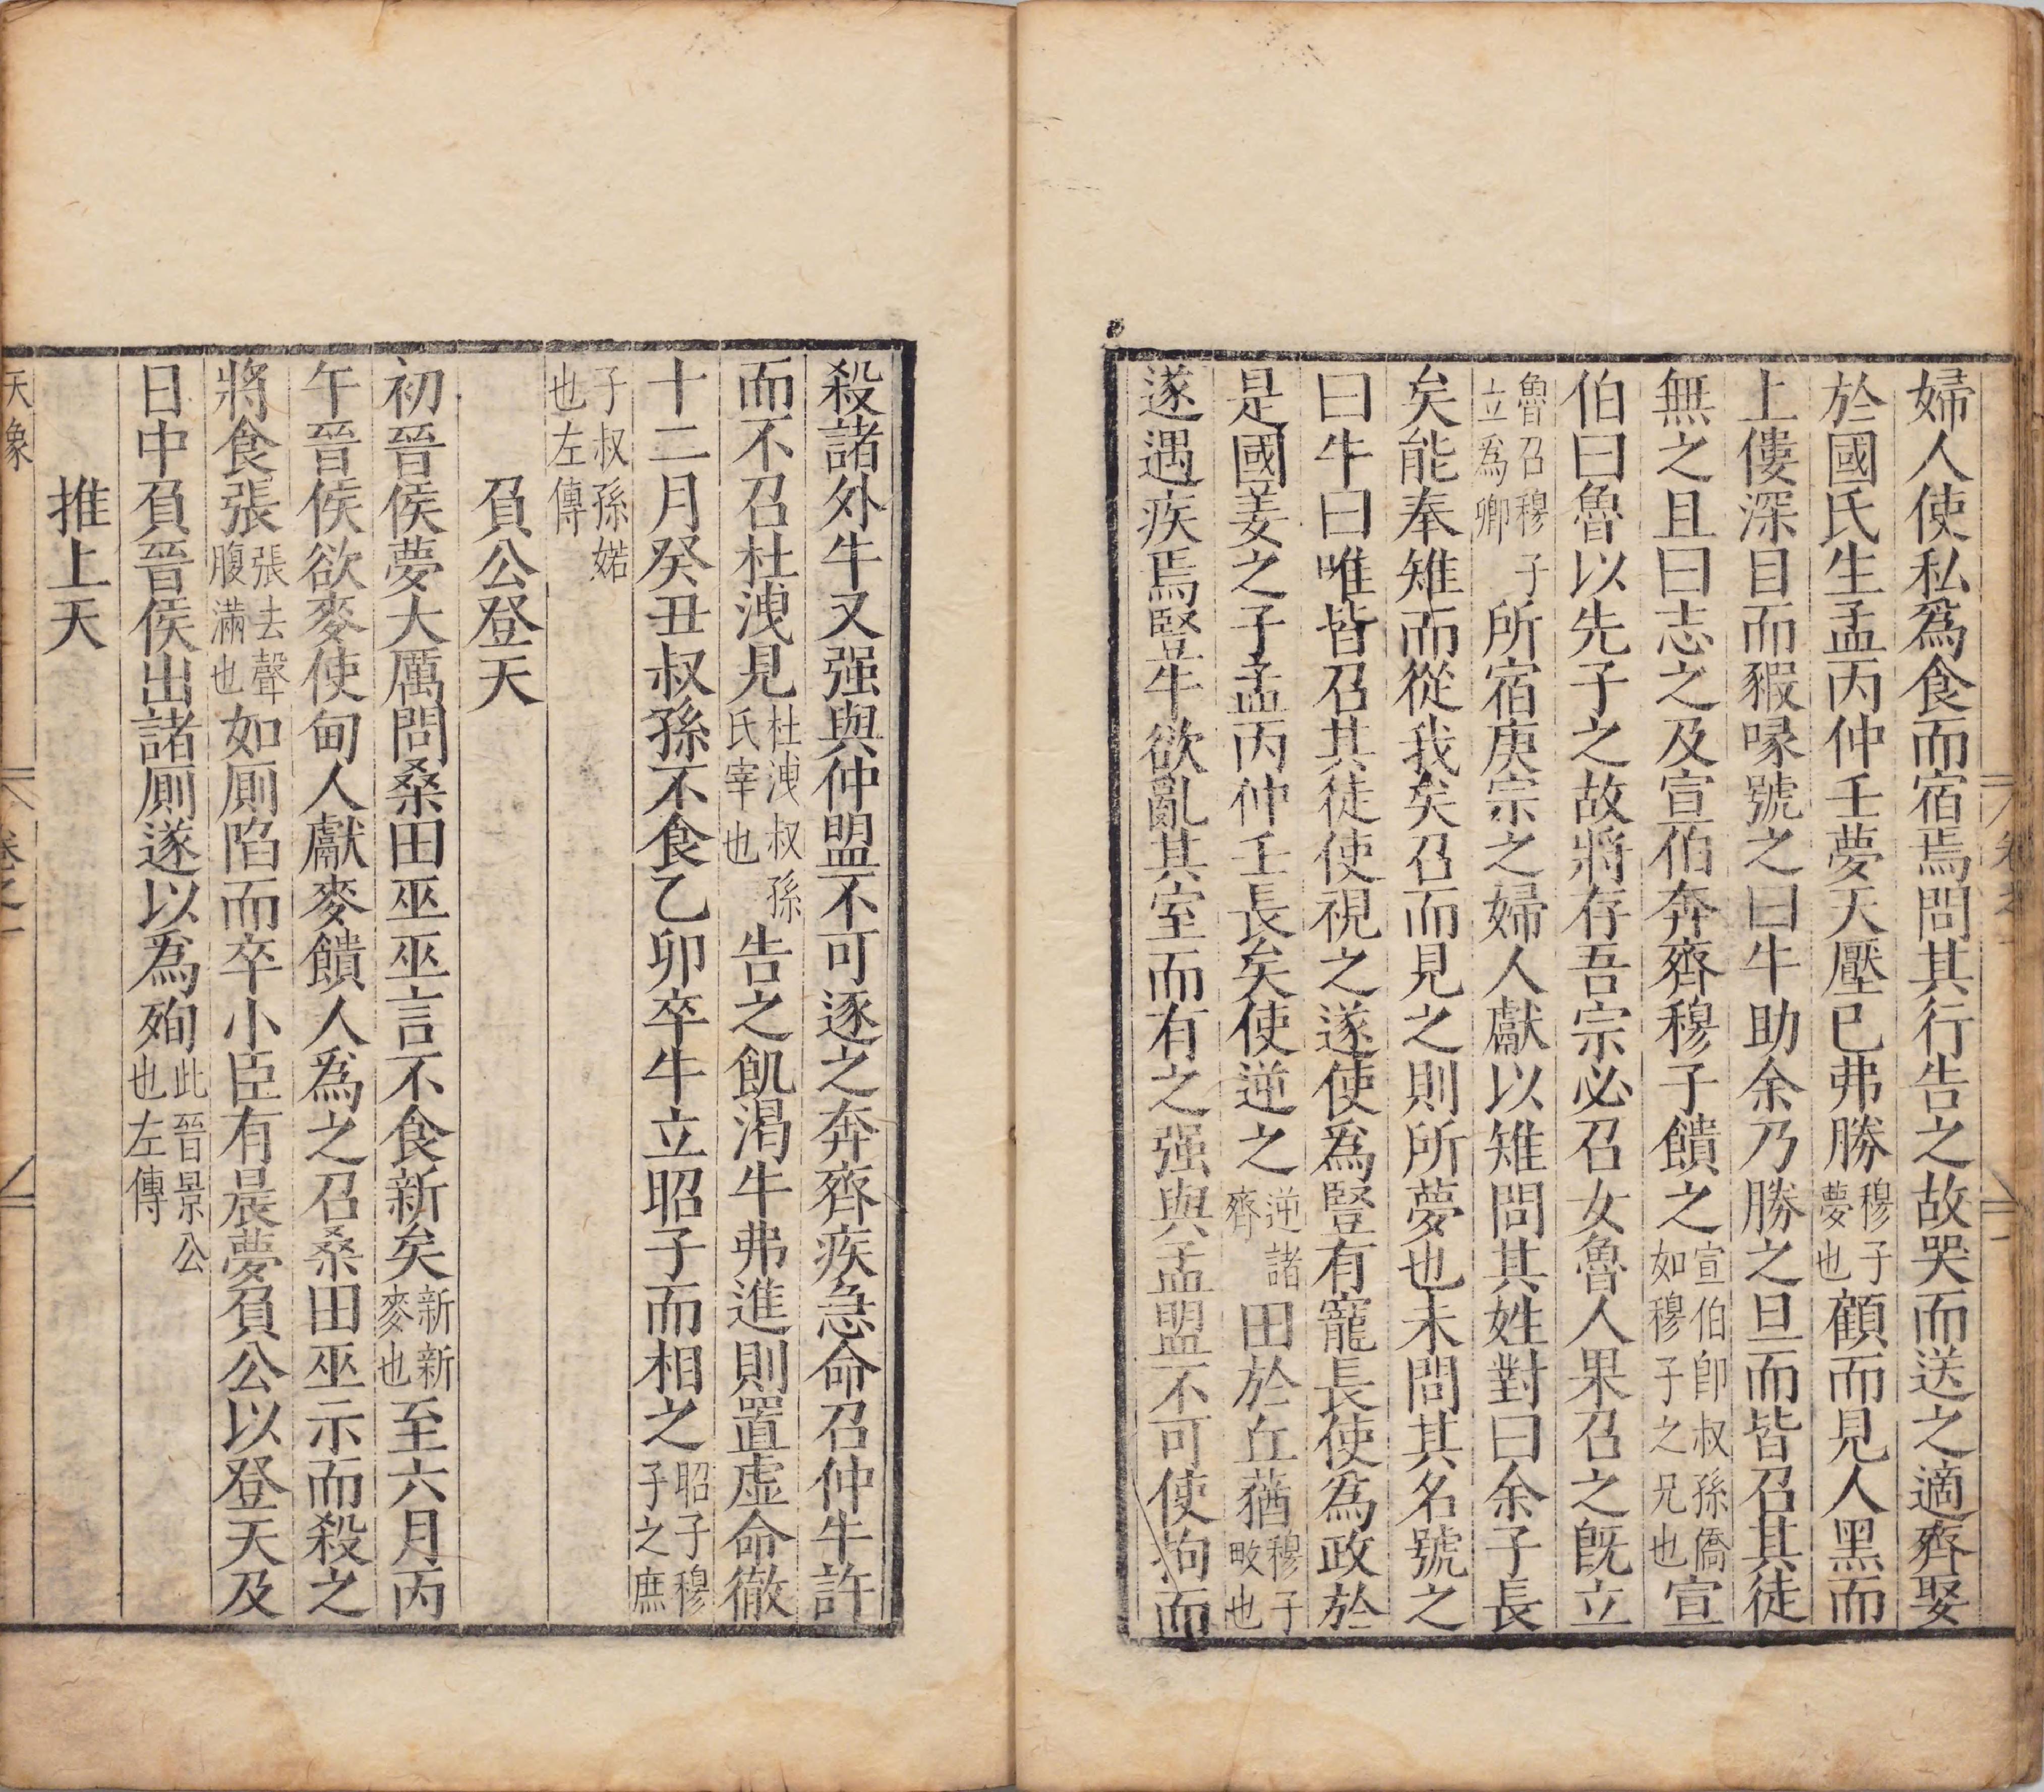 婦人使私爲食而宿焉問其行告之故哭而送之適齊娶
於國氏生孟丙仲壬夢天壓已弗勝穆子夢也顧而見人黑而
上僂深目而豭喙號之曰牛助余乃勝之旦而皆召其徒
無之且曰志之及宣伯奔齊穆子饋之宣伯卽叔孫僑如穆子之兄也宣
伯曰魯以先子之故將存吾宗必召女魯人果召之旣立
魯召穆子立爲卿所宿庚宗之婦人獻以雉問其姓對曰余子長
矣能奉雉而從我矣召而見之則所夢也未問其名號之
曰牛曰唯皆召其徒使視之遂使爲豎有寵長使爲政於
是國姜之子孟丙仲壬長矣使逆之逆諸齊田於丘蕕穆子畋也
遂遇疾焉豎牛欲亂其室而有之强與孟盟不可使拘而
殺諸外牛又强與仲盟不可逐之奔齊疾急命召仲牛許
而不召杜洩見杜洩叔孫氏宰也告之飢渴牛弗進則置虛命徹
十二月癸丑叔孫不食乙卯卒牛立昭子而相之昭子穆子之庶
子叔孫婼也左傳
負公登天
初晉侯夢大厲問桑田巫巫言不食新矣新新麥也至六月丙
午晉侯欲麥使甸人獻麥饋人爲之召桑田巫示而殺之
將食張張去聲腹滿也如厠陷而卒小臣有晨夢負公以登天及
日中負晉侯出諸厠遂以爲殉此晉景公也左傳
推上天
天象
卷之一